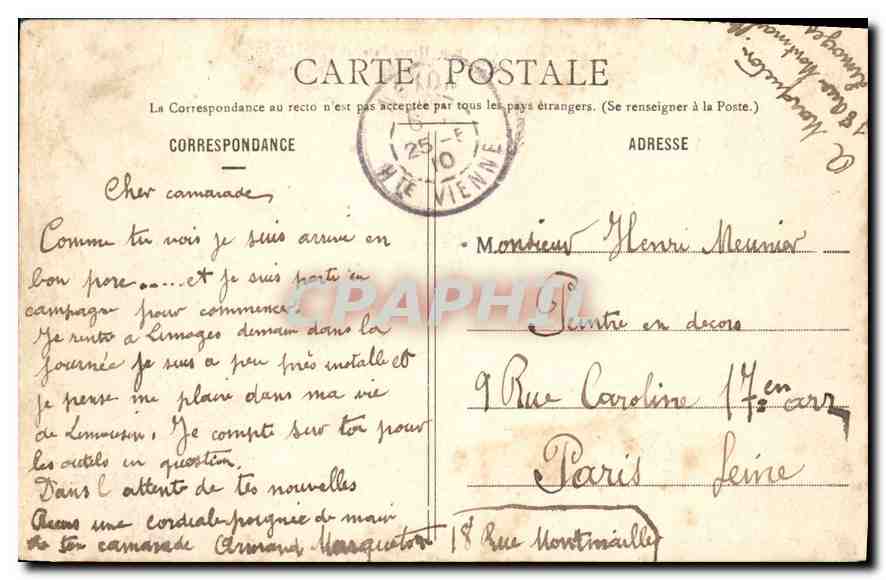 CARTE POSTALE
La Correspondance au recto n'est pas acceptée par tous les pays étrangers. (Se renseigner à la Poste.)
CORRESPONDANCE
ADRESSE
25 -5
10
HTE VIENNE
Cher camarade,
Comme tu vois je suis arrivé en
bon pore.....et je suis parti en
campagne pour commencer.
Je rentre a Limoges demain dans la
journée je suis a peu près installé et
je pense me plaire dans ma vie
de Limousin. Je compte sur toi pour
les outils en question.
Dans l attente de tes nouvelles
Reçois une cordiale poignée de main
de ton camarade Armand Marqueton
18 Rue Montmailler
Monsieur Henri Meunier
Peintre en decors
9 Rue Caroline 17en arr
Paris Seine
A Marqueton
18 Rue Montmailler
Limoges
CPAPHIL